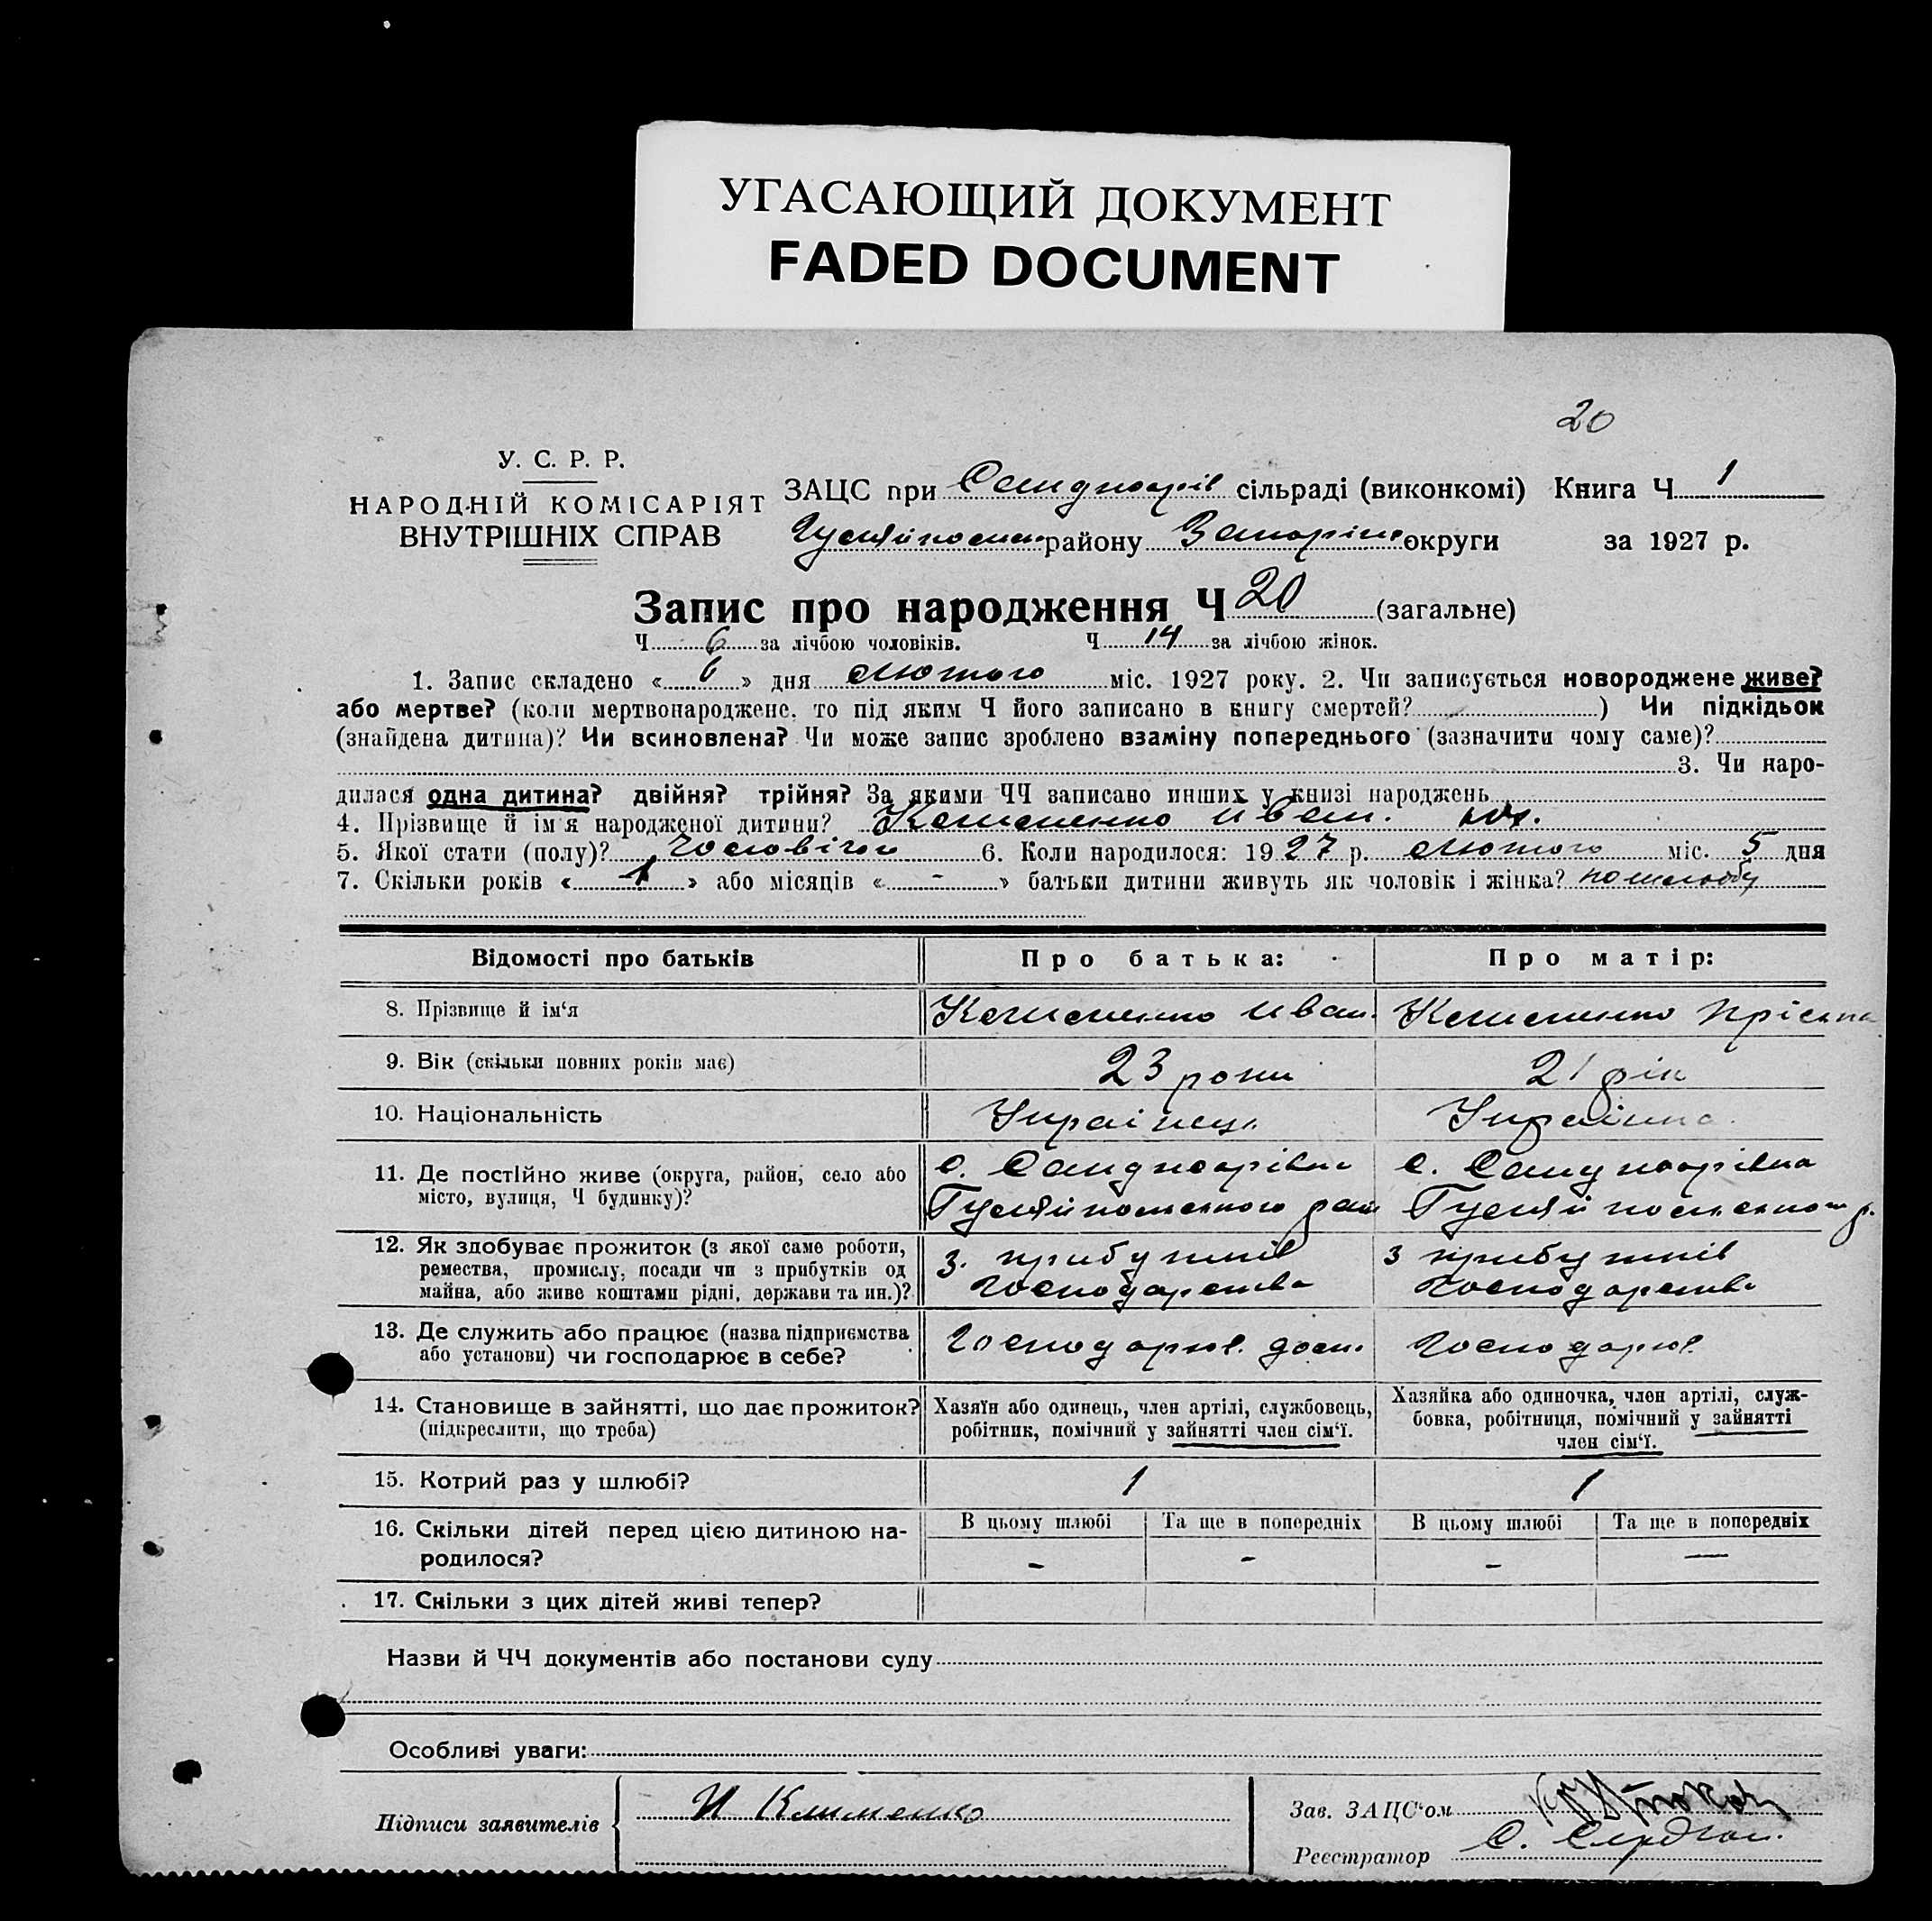 УГАСАЮЩИЙ ДОКУМЕНТ
FADED DOCUMENT
20
У. С. Р. Р.
НАРОДНІЙ КОМІСАРІЯТ
ВНУТРІШНІХ СПРАВ
ЗАЦС при сільраді (виконкомі) Книга Ч 1
району Запоріж округи за 1927 р.
Запис про народження Ч 20 (загальне)
Ч 6 за лічбою чоловіків. Ч 14 за лічбою жінок.
1. Запис складено « 6 » дня лютого міс. 1927 року. 2. Чи записується новороджене живе?
або мертве? (коли мертвонароджене, то під яким Ч його записано в книгу смертей? ) Чи підкідьок
(знайдена дитина)? Чи всиновлена? Чи може запис зроблено взаміну попереднього (зазначити чому саме)?
3. Чи наро-
дилася одна дитина? двійня? трійня? За якими ЧЧ записано инших у книзі народжень
4. Прізвище й ім'я народженої дитини? Клименко Иван.
5. Якої стати (полу)? чоловічої 6. Коли народилося: 1927 р. лютого міс. 5 дня
7. Скільки років « 1 » або місяців « - » батьки дитини живуть як чоловік і жінка? по шлюбу
Відомості про батьків Про батька: Про матір:
8. Прізвище й ім'я Клименко Иван. Клименко
9. Вік (скільки повних років має) 23 роки 21 рік
10. Національність Українець Українка
11. Де постійно живе (округа, район, село або місто, вулиця, Ч будинку)?
с. с.
Гуляйпольського рай Гуляйпольського р.
12. Як здобуває прожиток (з якої саме роботи, ремества, промислу, посади чи з прибутків од майна, або живе коштами рідні, держави та ин.)?
з. прибутків з прибутків
господарства господарства
13. Де служить або працює (назва підприємства або установи) чи господарює в себе? господарює. господарює
14. Становище в зайнятті, що дає прожиток? (підкреслити, що треба)
Хазяїн або одинець, член артілі, службовець, робітник, помічний у зайнятті член сім'ї.
Хазяйка або одиночка, член артілі, служ-
бовка, робітниця, помічний у зайнятті
член сім'ї.
15. Котрий раз у шлюбі? 1 1
16. Скільки дітей перед цією дитиною на-
родилося?
В цьому шлюбі Та ще в попередніх В цьому шлюбі Та ще в попередніх
- - - -
17. Скільки з цих дітей живі тепер?
Назви й ЧЧ документів або постанови суду
Особливі уваги:
Підписи заявителів И Клименко
Зав. ЗАЦС'ом
Реєстратор